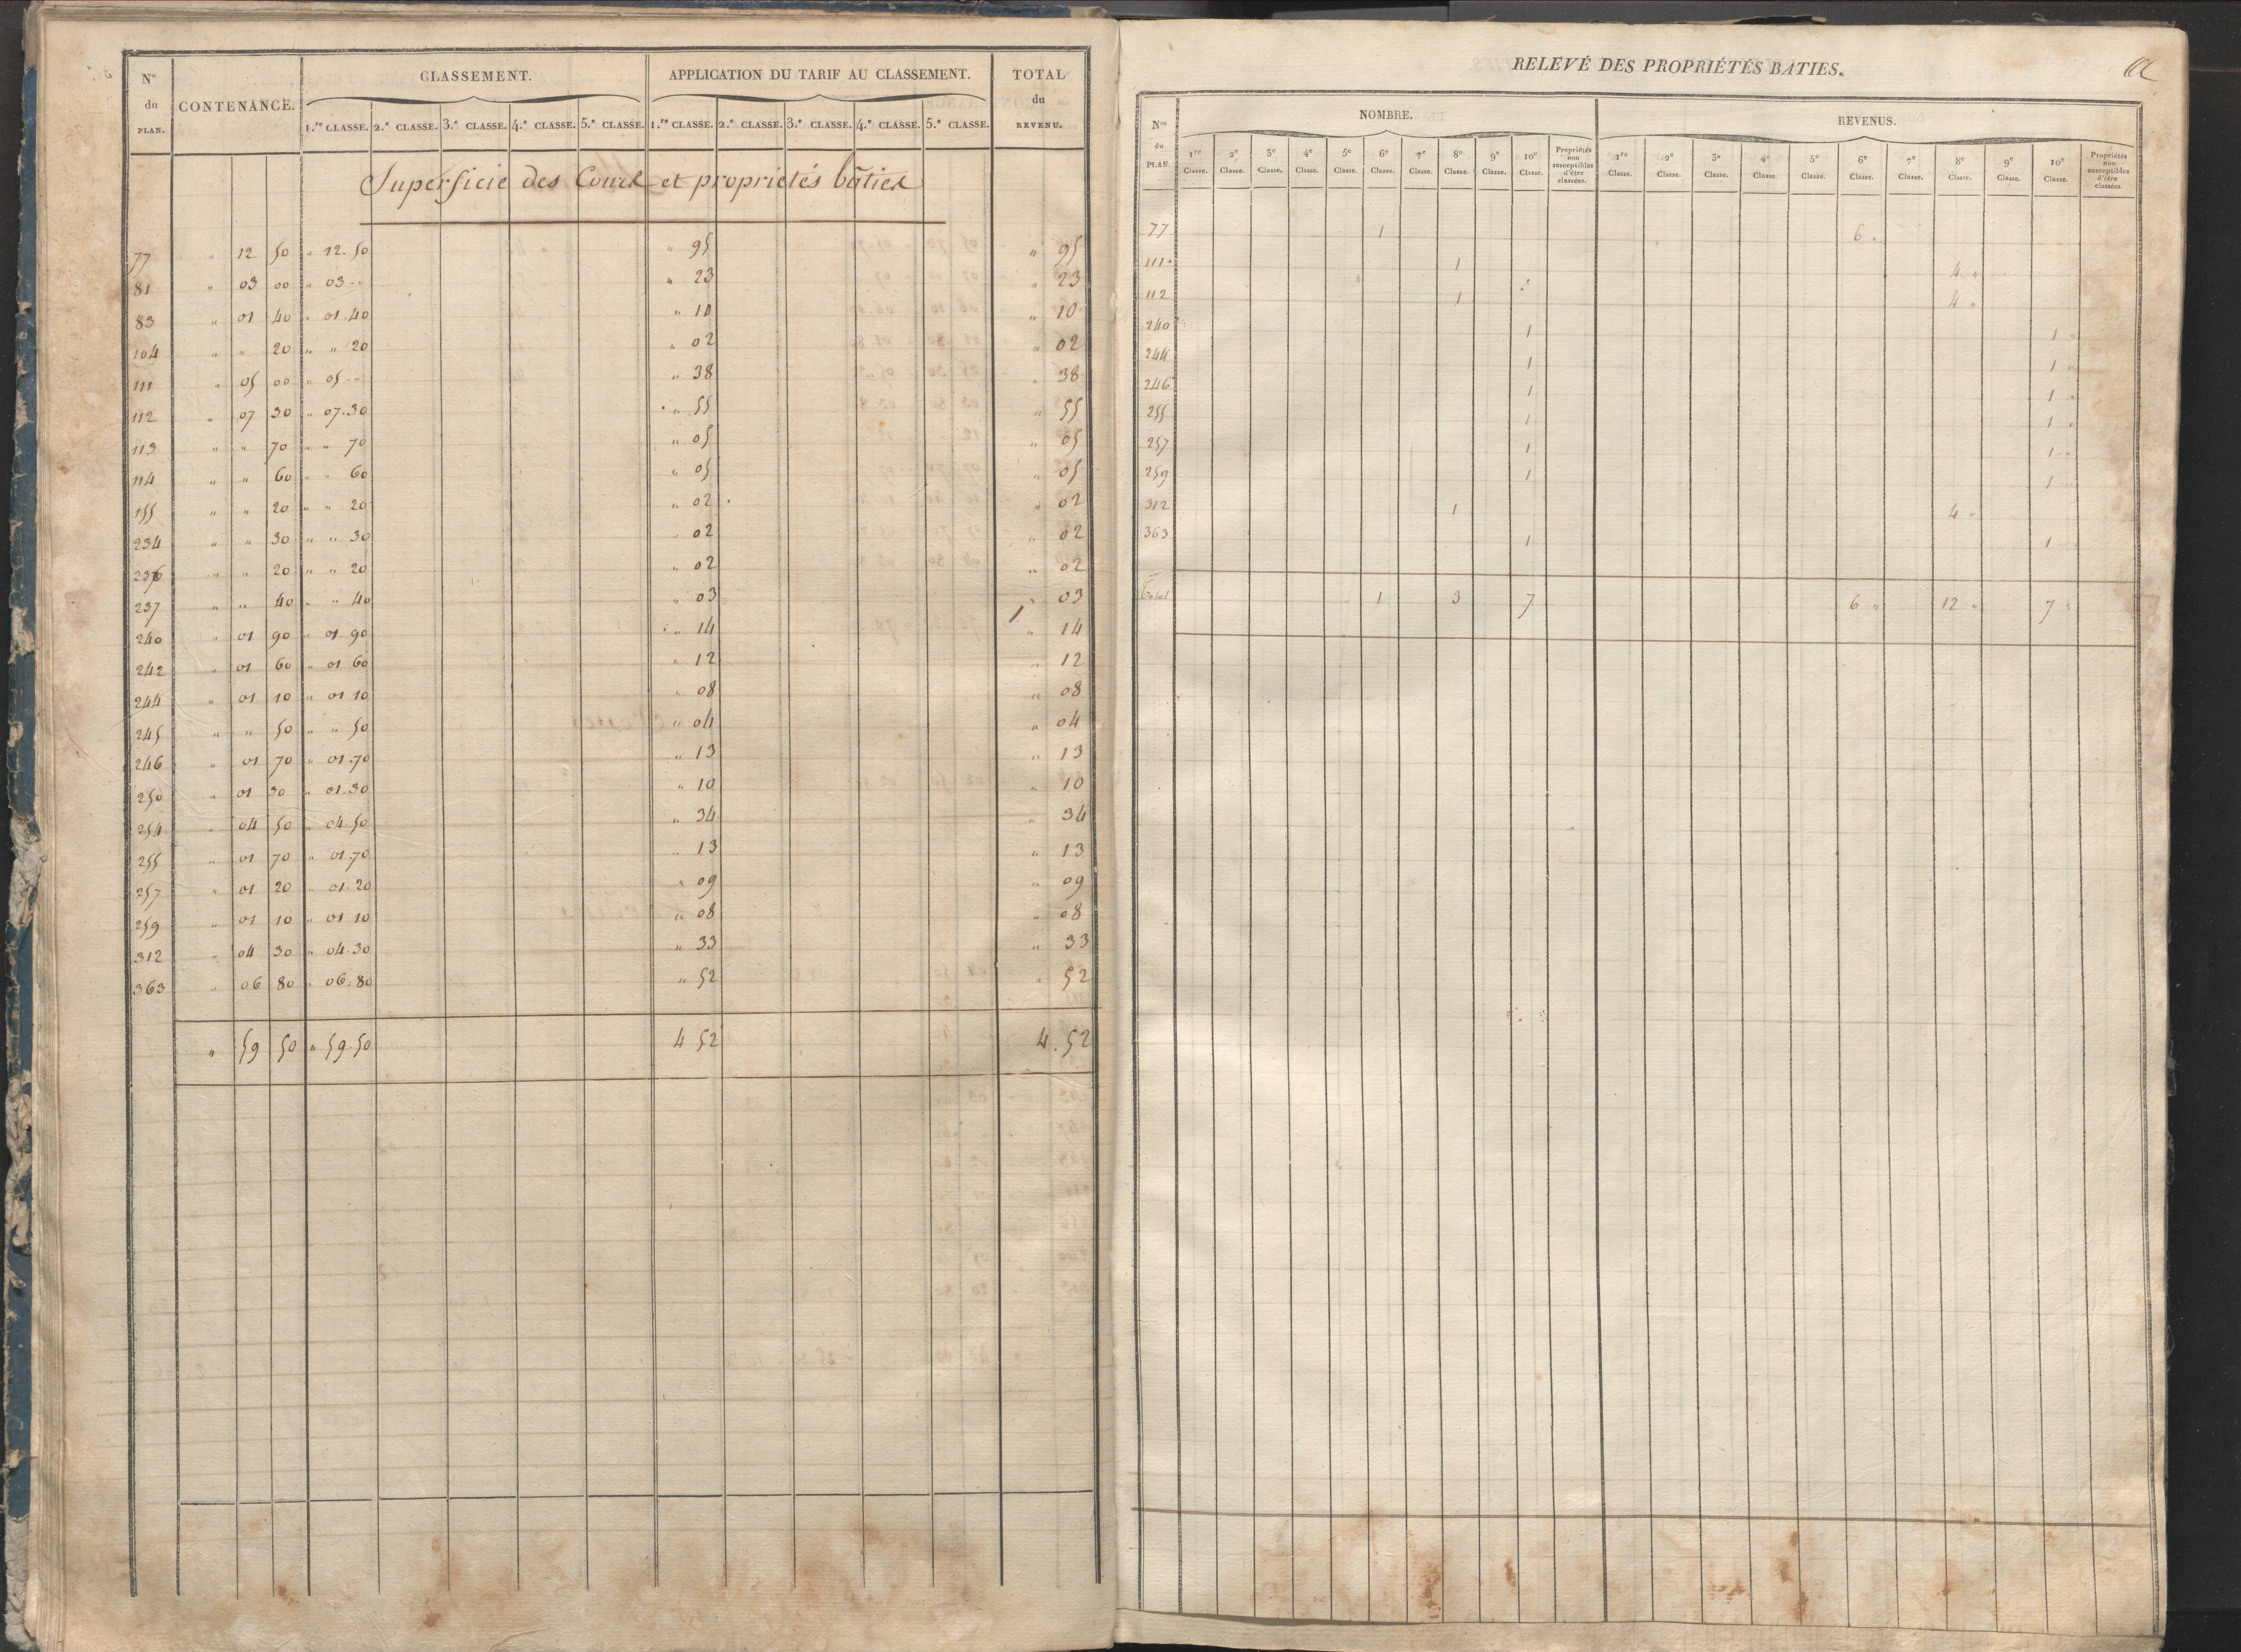 N.º du PLAN. CONTENANCE. CLASSEMENT. APPLICATION DU TARIF AU CLASSEMENT. TOTAL du REVENU.
1.re CLASSE. 2.e CLASSE. 3.e CLASSE. 4.e CLASSE. 5.e CLASSE. 1.re CLASSE. 2.e CLASSE. 3.e CLASSE. 4.e CLASSE. 5.e CLASSE.
Superficie des Cours et propriétés bâties
77 " 12 50 " 12.50 " 95 " 95
81 " 03 00 " 03 - " " 23 " 23
83 " 01 40 " 01.40 " 10 " 10
104 " " 20 " " 20 " 02 " 02
111 " 05 00 " 05 - " " 38 " 38
112 " 07 30 " 07.30 " 55 " 55
113 " " 70 " " 70 " 05 " 05
114 " " 60 " " 60 " 05 " 05
155 " " 20 " " 20 " 02 " 02
234 " " 30 " " 30 " 02 " 02
236 " " 20 " " 20 " 02 " 02
237 " " 40 " " 40 " 03 " 03
240 " 01 90 " 01.90 " 14 " 14
242 " 01 60 " 01 60 " 12 " 12
244 " 01 10 " 01 10 " 08 " 08
245 " " 50 " " 50 " 04 " 04
246 " 01 70 " 01.70 " 13 " 13
250 " 01 30 " 01.30 " 10 " 10
254 " 04 50 " 04.50 " 34 " 34
255 " 01 70 " 01.70 " 13 " 13
257 " 01 20 " 01.20 " 09 " 09
259 " 01 10 " 01 10 " 08 " 08
312 " 04 30 " 04.30 " 33 " 33
363 " 06 80 " 06.80 " 52 " 52
" 59 50 " 59.50 4 52 4.52
RELEVÉ DES PROPRIÉTÉS BATIES.
N.os du PLAN. NOMBRE. REVENUS.
1re Classe. 2e Classe. 3e Classe. 4e Classe. 5e Classe. 6e Classe. 7e Classe. 8e Classe. 9e Classe. 10e Classe. Propriétés non susceptibles d'être classées. 1re Classe. 2e Classe. 3e Classe. 4e Classe. 5e Classe. 6e Classe. 7e Classe. 8e Classe. 9e Classe. 10e Classe. Propriétés non susceptibles d'être classées.
77 1 6 "
111 1 4 "
112 1 4 "
240 1 1 "
244 1 1 "
246 1 1 "
255 1 1 "
257 1 1 "
259 1 1
312 1 4 "
363 1 1 "
Total 1 3 7 6 " 12 " 7 "